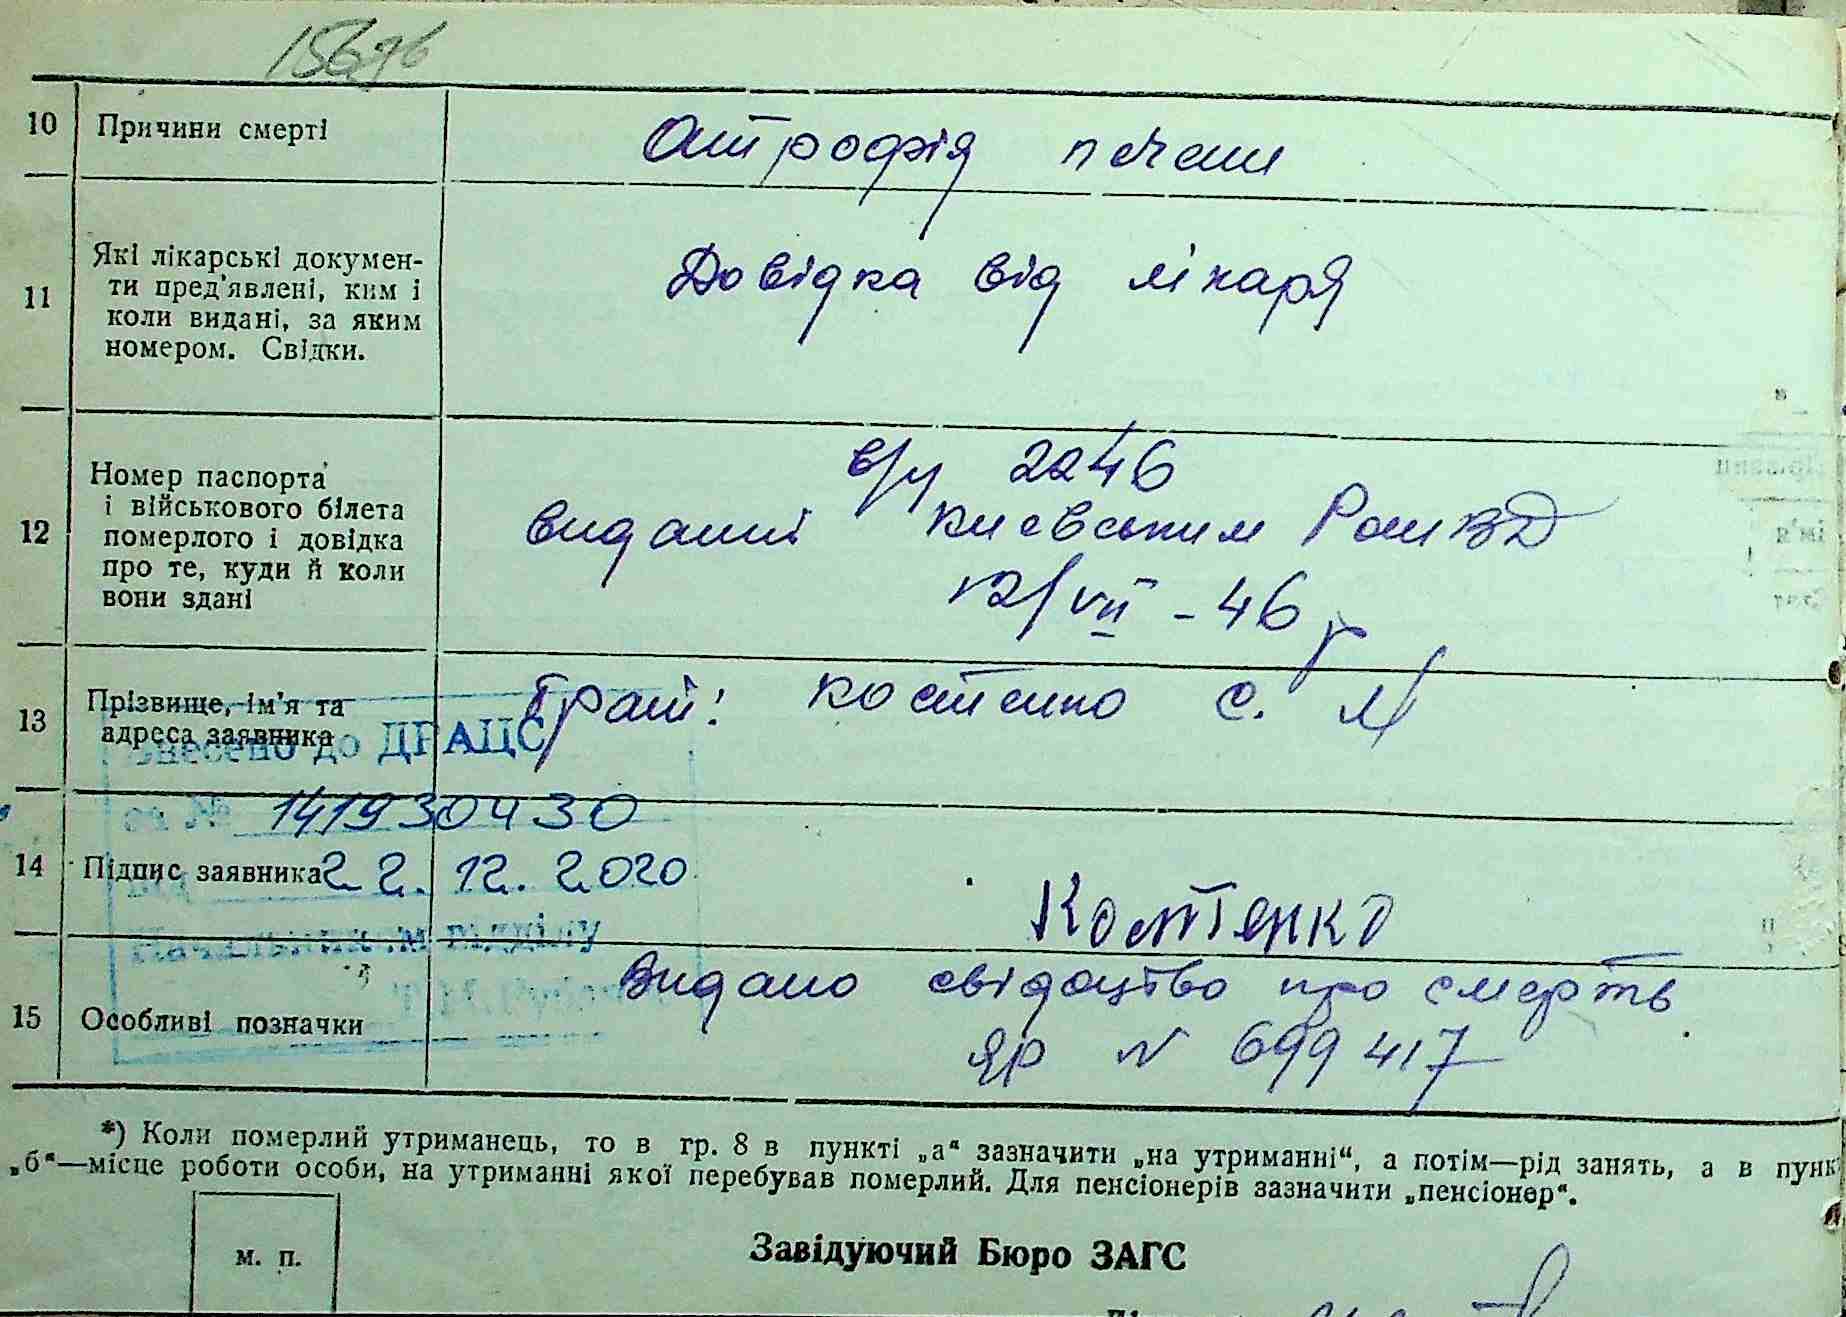 10 Причини смерті Атрофія печени
11 Які лікарські докумен-
ти пред'явлені, ким і
коли видані, за яким
номером. Свідки.
Довідка від лікаря
12 Номер паспорта
і військового білета
померлого і довідка
про те, куди й коли
вони здані
в/у 2246
виданий Києвським РайВД
12/VII - 46 р
13 Прізвище, ім'я та
адреса заявника
Костенко С. М
Внесено до ДРАЦС
за № 141930430
14 Підпис заявника Костенко
22.12.2020
Начальником відділу
15 Особливі позначки
Видано свідоцтво про смерть
ЯР N 699417
*) Коли померлий утриманець, то в гр. 8 в пункті „а“ зазначити „на утриманні“, а потім—рід занять, а в пунк
„б“—місце роботи особи, на утриманні якої перебував померлий. Для пенсіонерів зазначити „пенсіонер“.
м. п.
Завідуючий Бюро ЗАГС